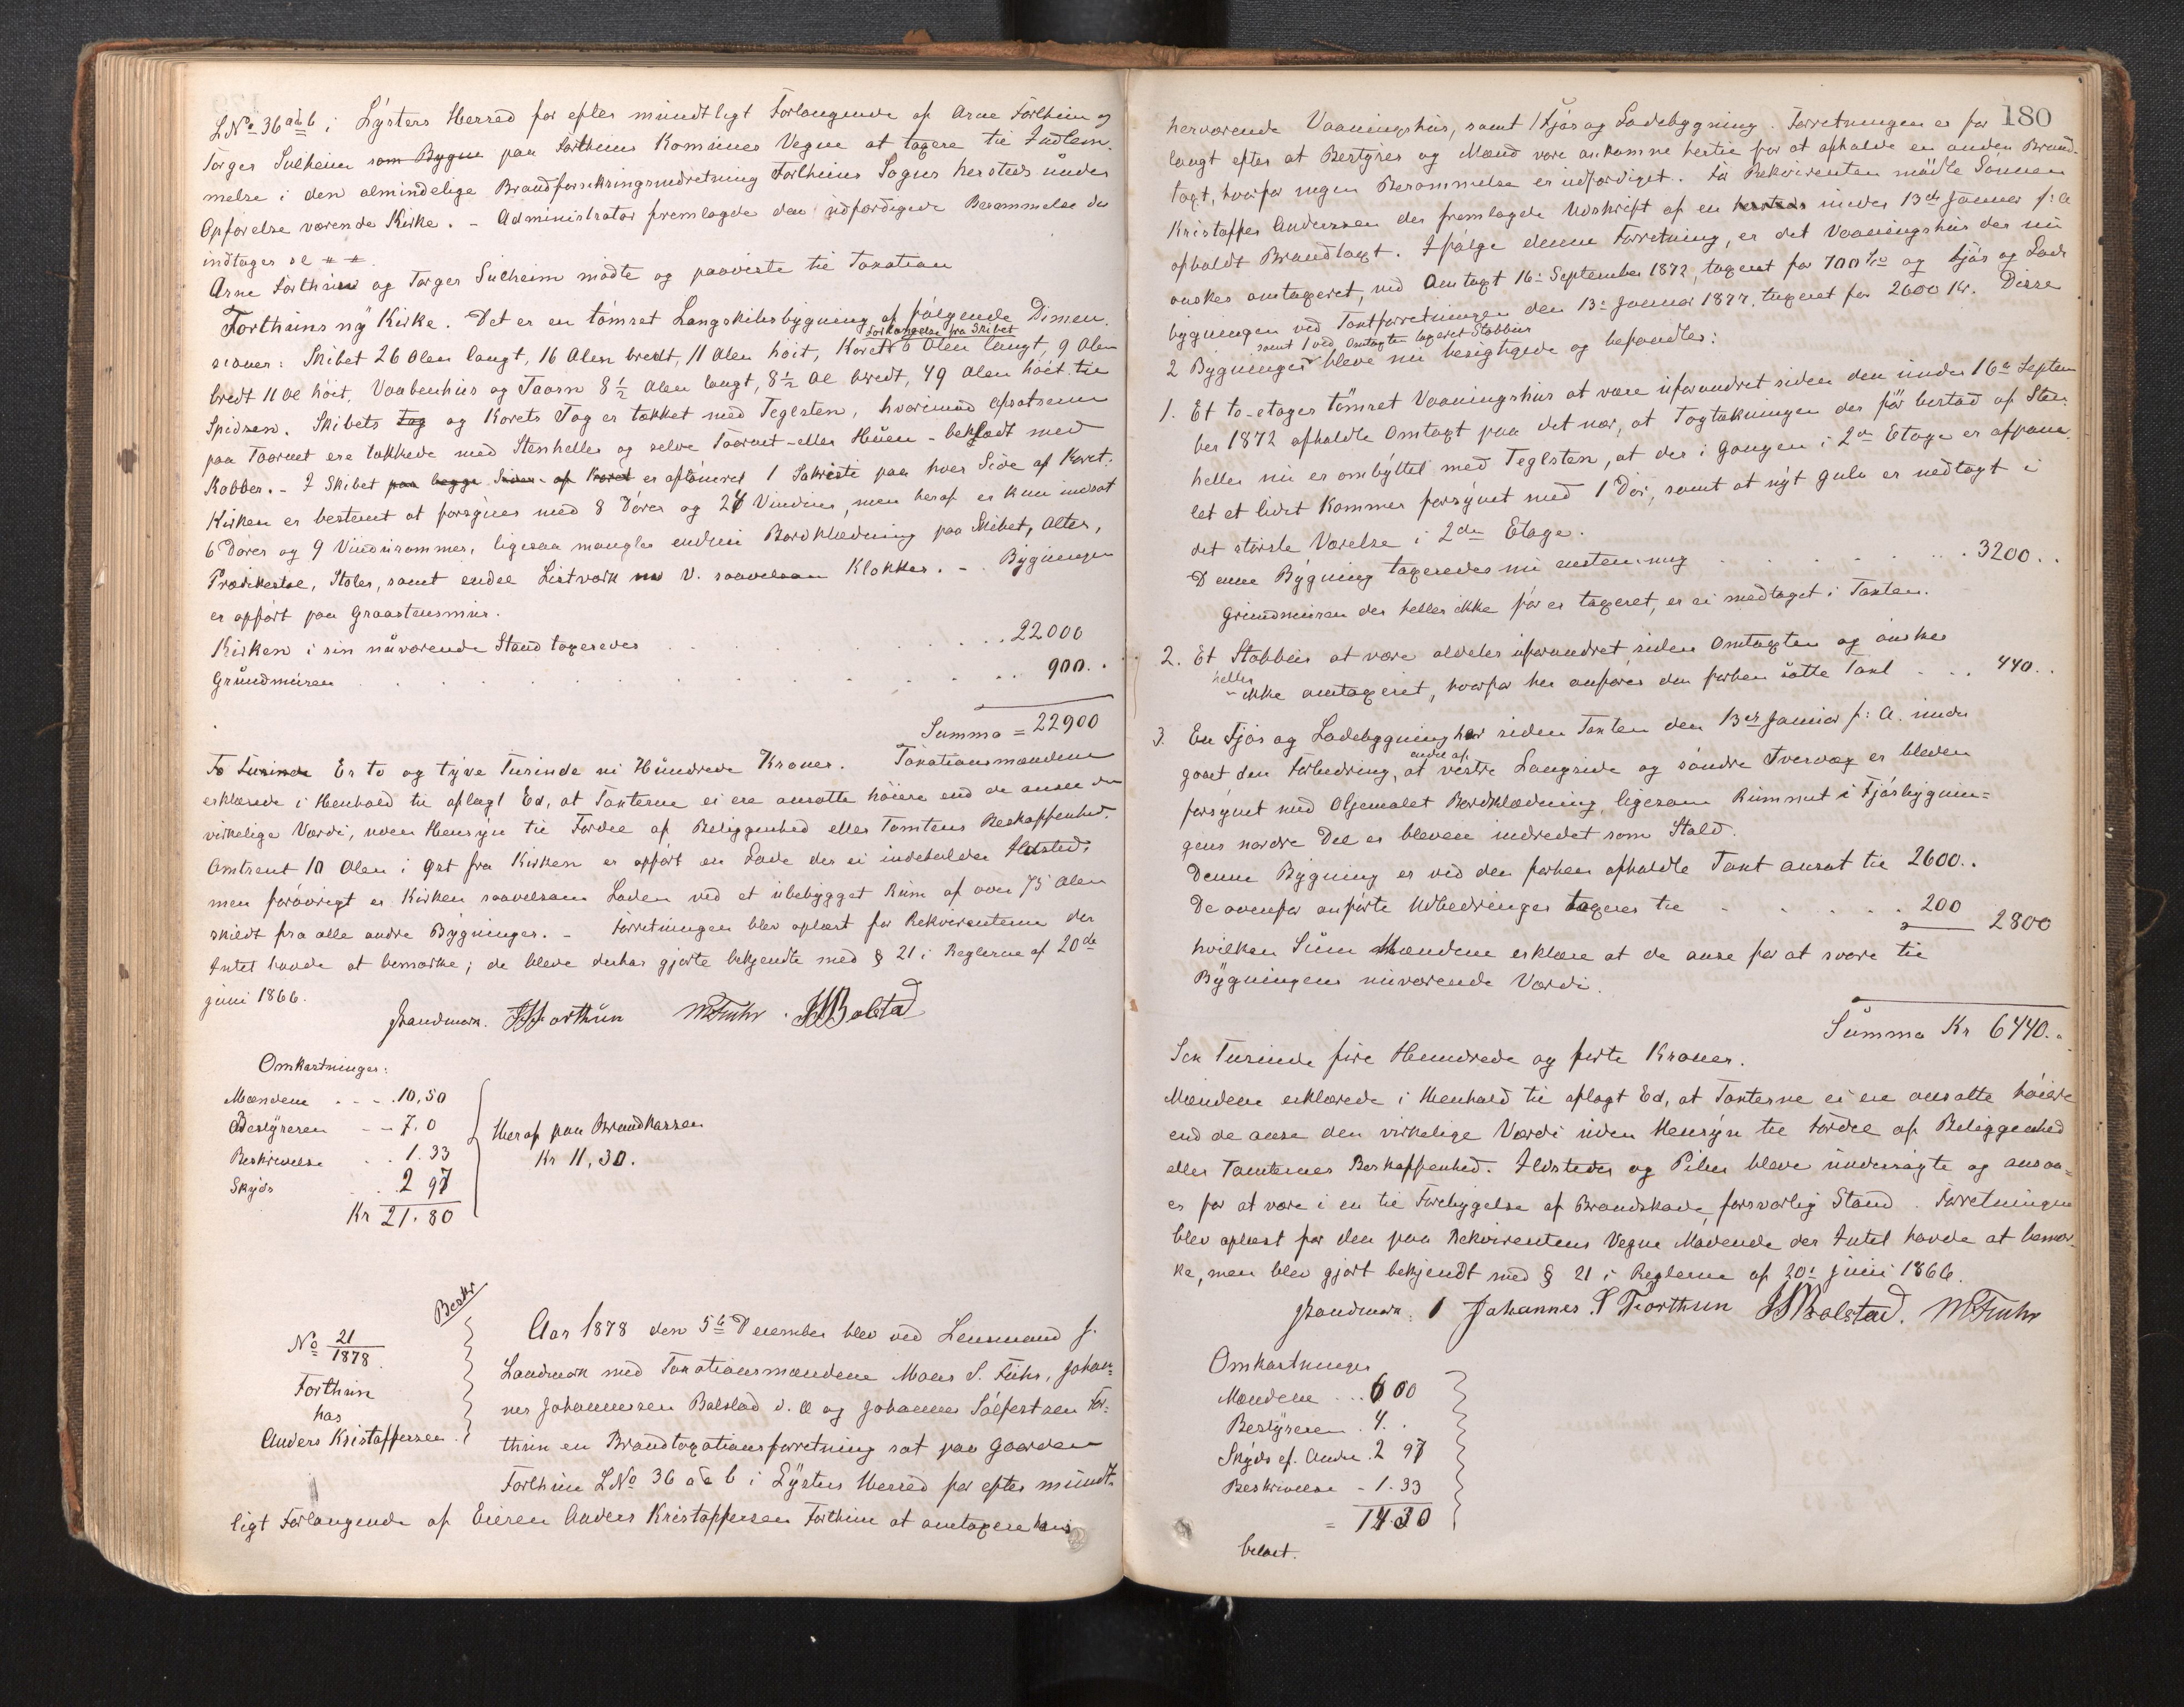 LNo 36 a & b i Lysters Herred for efter mundtligt Forlangende af Arne Forthun og
Torger Sulheim som Bygne paa Forthuns Kommunes Vegne at taxere til Indlem-
melse i den almindelige Brandforsikringsindretning Forthuns Sogns hersteds under
Opførelse værende Kirke. - Administrator fremlagde den udfærdigede Berammelse der
indtages sl
Arne Forthun og Torger Sulheim mødte og paaviste til Taxation
Forthuns ny Kirke. Det er en tømret Langskibsbygning af følgende Dimen-
Forlængelse fra Skibet
sioner: Skibet 26 Alen langt, 16 Alen bredt, 11 Alen høit, Koret 6 Alen langt, 9 Alen
bredt 11 Al høit, Vaabenhus og Taarn 8½ Alen langt, 8½ Al bredt, 49 Alen høit til
Spidsen. Skibets Tag og Korets Tag er tækket med Teglsten, hvorimod afsatserne
paa Taarnet ere tækkede med Stenheller og selve Taarnet - eller Huen - beklædt med
Kobber. - I Skibet paa begge Sider af Koret er aftømret 1 Sakristi paa hver Side af Koret.
Kirken er bestemt at forsynes med 8 Døre og 24 Vinduer, men heraf er kun indsat
6 Døres og 9 Vindusrammer, ligesaa mangler endnu Bordklædning paa Skibet, Alter,
Prædikestol, Stoler, samt endel Listværk m v. saavelsom Klokker. - Bygningen
er opført paa Graastensmur.
Kirken i sin nuværende Stand taxeredes . . . 22000
Grundmuren . . . 900 . .
Summa = 22900
To Tusinde Er to og tyve Tusinde ni Hundrede Kroner. Taxationsmændene
erklærede i Henhold til aflagt Ed, at Taxterne ei ere ansatte høiere end de anser den
virkelige Værdi, uden Hensyn til Fordel af Beliggenhed eller Tomtens Beskaffenhed.
Omtrent 10 Alen i Øst fra Kirken er opført en Lade der ei indeholder Ildsted,
men forøvrigt er Kirken saavelsom Laden ved et ubebygget Rum af over 75 Alen
skildt fra alle andre Bygninger. - Forretningen blev oplæst for Rekvirenterne der
Intet havde at bemærke; de bleve derhos gjorte bekjendte med § 21 i Reglerne af 20de
Juni 1866.
Landmark. JSForthun MFuhr. JJBolstad
Omkostninger:
Mændene . . . . 10,50
Bestyreren - - 7. 0
Beskrivelse . . 1. 33
Skyds . . 2 97
Kr 21. 80
Heraf paa Brandkassen
Kr 11,30.
Beskr
No 21/1878.
Forthun
hos
Anders Kristoffersen.
Aar 1878 den 5te December blev ved Lensmand J.
Landmark med Taxationsmændene Mons S. Fuhr, Johan-
nes Johannessen Bolstad d. æ og Johannes Sølfestsen For-
thun en Brandtaxationsforretning sat paa Gaarden
Forthun LNo 36 a & b i Lysters Herred for efter mundt-
ligt Forlangende af Eieren Anders Kristoffersen Forthun at omtaxere hans
180
herværende Vaaningshus, samt 1 Fjøs og Ladebygning. Forretningen er for
langt efter at Bestyrer og Mænd vare ankomne hertil for at afholde en anden Brand-
taxt, hvorfor ingen Berammelse er udfærdiget. For Rekvirenten mødte Sønnen
Kristoffer Andersen der fremlagde Udskrift af en hersteds under 13de Januar f: A
afholdt Brandtaxt. Ifølge denne Forretning, er det Vaaningshus der nu
ønskes omtaxeret, ved Omtaxt 16: September 1872, taxeret for 700 Sp og Fjøs og Lade-
bygningen ved Taxtforretningen den 13: Januar 1877, taxeret for 2600 Kr. Disse
samt 1 ved Omtaxten taxeret Stabbur
2 Bygninger bleve nu besigtigede og befandtes:
1. Et to-etages tømret Vaaningshus at være uforandret siden den under 16de Septem-
ber 1872 afholdte Omtaxt paa det nær, at Tagtækningen der før bestod af Sten-
heller nu er ombyttet med Teglsten, at der i Gangen i 2den Etage er afpane-
let et lidet Kammer forsynet med 1 Dør, samt at nyt Gulv er nedlagt i
det største Værelse i 2den Etage.
Denne Bygning taxeredes nu enstemmig . . . 3200 . .
Grundmuren der heller ikke før er taxeret, er ei medtaget i Taxten.
2. Et Stabbur at være aldeles uforandret, siden Omtaxten og ønskes
heller
ikke omtaxeret, hvorfor her anføres den forhen satte Taxt . . . 440 . .
3. En Fjøs og Ladebygning har siden Taxten den 13de Januar f: A. under-
endel af
gaaet den Forbedring, at vestre Langside og søndre Tvervæg er bleven
forsynet med Oljemalet Bordklædning, ligesom Rummet i Fjøsbygnin-
gens nordre Del er bleven indredet som Stald.
Denne Bygning er ved den forhen afholdte Taxt ansat til 2600 . .
De ovenfor anførte Udbedringer taxeres til . . . 200
2800
hvilken Sum Mændene erklære at de anse for at svare til
Bygningens nuværende Værdi.
Summa Kr 6440 . .
Sex Tusinde fire Hundrede og førti Kroner.
Mændene erklærede i Henhold til aflagt Ed, at Taxterne ei ere ansatte høiere
end de anse den virkelige Værdi uden Hensyn til Fordel af Beliggenhed
eller Tomternes Beskaffenhed. Ildsteder og Piber bleve undersøgte og ansaa-
es for at være i en til Forebyggelse af Brandskade forsvarlig Stand. Forretningen
blev oplæst for den paa Rekvirentens Vegne Mødende der Intet havde at bemær-
ke, men blev gjort bekjendt med § 21 i Reglerne af 20: Juni 1866.
Landmark. Johannes S Forthun JJBolstad. MFuhr
Omkostninger
Mændene . . . 6 00
Bestyreren . 4. .
Skyds ef. Andre . 2 97
Beskrivelse - 1. 33
= 14.30
betalt.